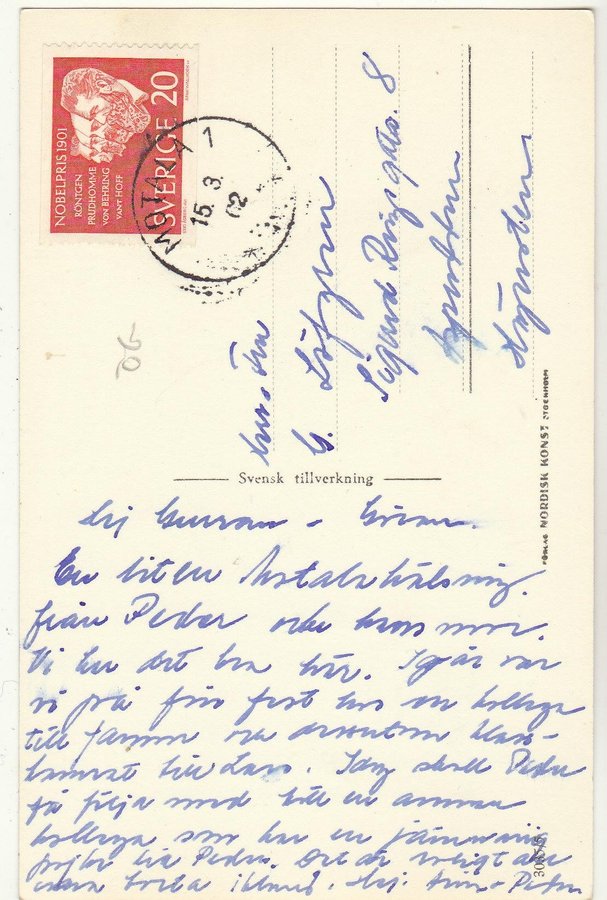 NOBELPRIS 1901
RÖNTGEN
PRUDHOMME
VON BEHRING
VAN'T HOFF
SVERIGE 20
MOTALA 1
15. 3.
62
Fru
G. Löfgren
Sigurd Ringsgatan 8
Nynäshamn
FÖRLAG NORDISK KONST STOCKHOLM
Svensk tillverkning
Hej Gunvor - Göran.
En liten Motala hälsning.
från Peder och hans mor.
Vi har det bra här. Igår var
vi på fin fest hos en kollega
till Janne och dessutom klass-
kamrat till Lars. Idag skall Peder
få följa med till en annan
kollega som har en jämnårig
pojke till Peder. Det är roligt att
vara borta ibland. Hej. - Peder